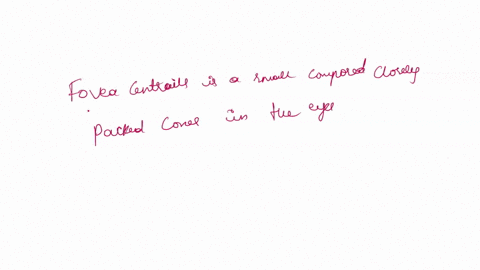 Fovea Centrails is a small composed closely
packed cones in the eye